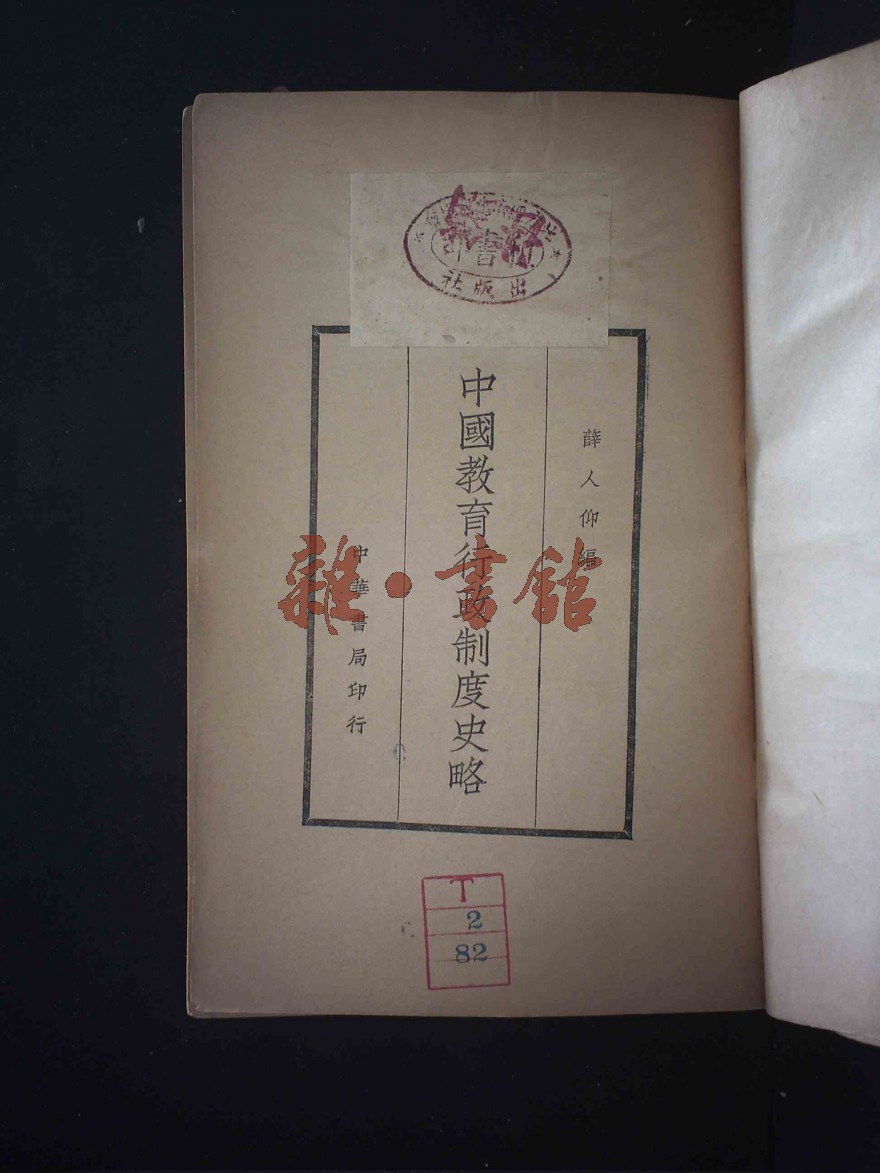 圖書
出版社
薛人仰編
中國教育行政制度史略
中華書局印行
雜·書館
T
2
82